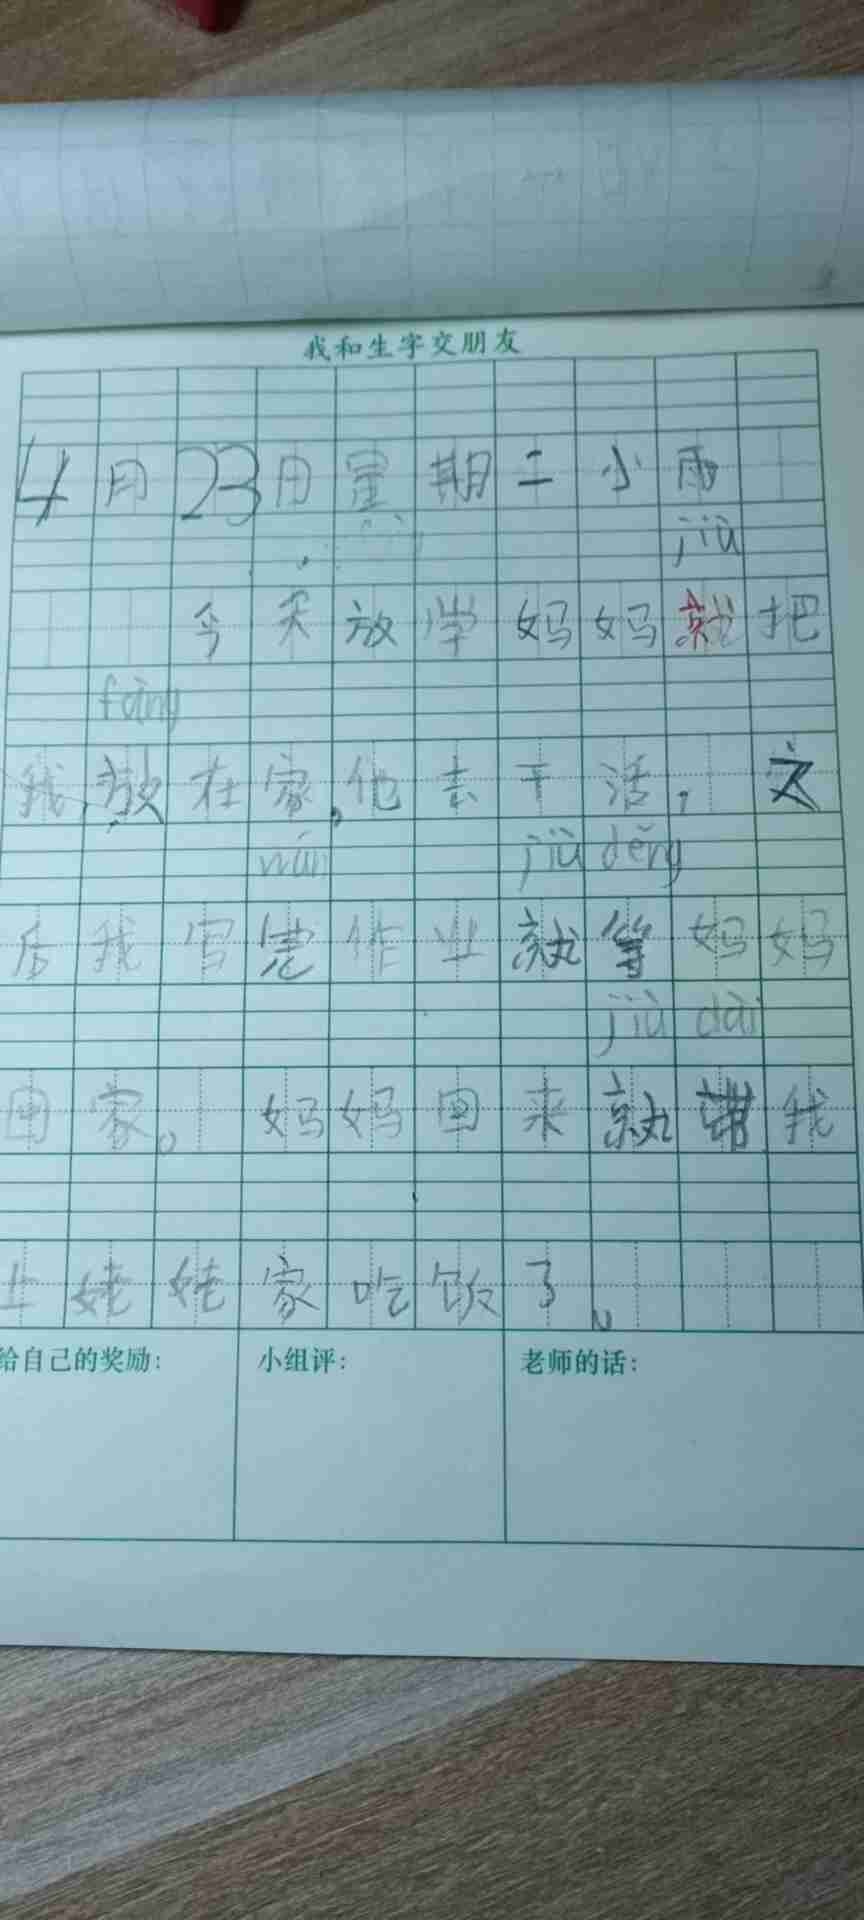 我和生字交朋友
4月23日星期二小雨
jiù
今天放学妈妈就把
fàng
我放在家,他去干活,文
wán jiù děng
后我写完作业就等妈妈
jiù dài
回家。妈妈回来就带我
上姥姥家吃饭了。
给自己的奖励: 小组评: 老师的话: